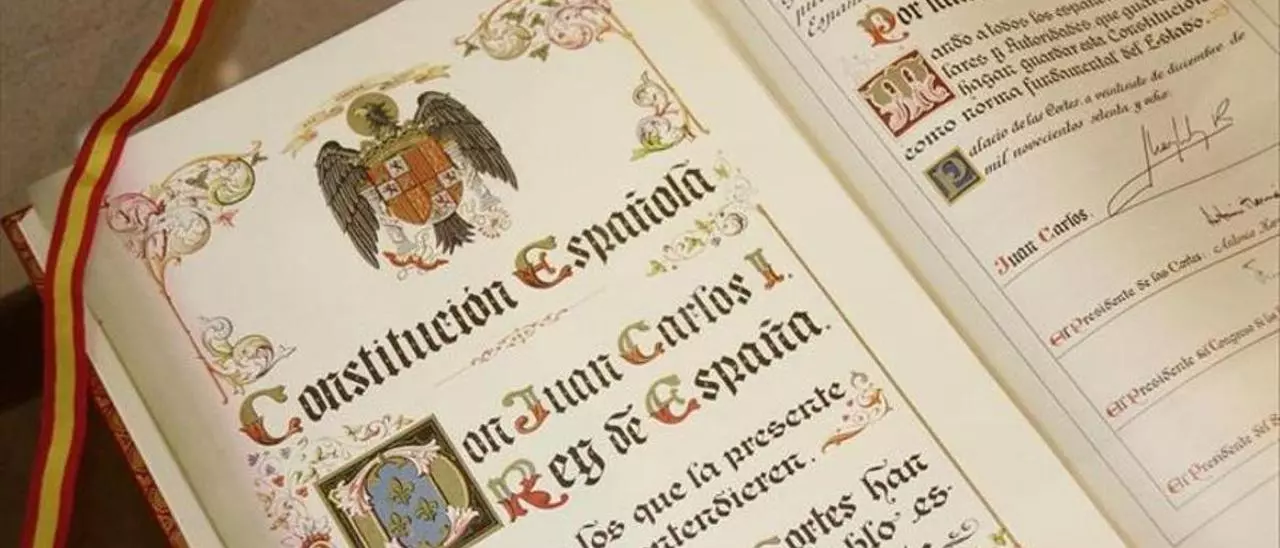 Constitución Española
Don Juan Carlos I.
Rey de España.
los que la presente
entendieren.
Cortes han
es-
Española
Por
Mando a todos los
lares y Autoridades que
hagan guardar esta Constitución
como norma fundamental del Estado.
Palacio de las Cortes, a veintisiete de diciembre de
mil novecientos setenta y ocho.
Juan Carlos.
El Presidente de las Cortes: Antonio
El Presidente del Congreso de los
El Presidente del